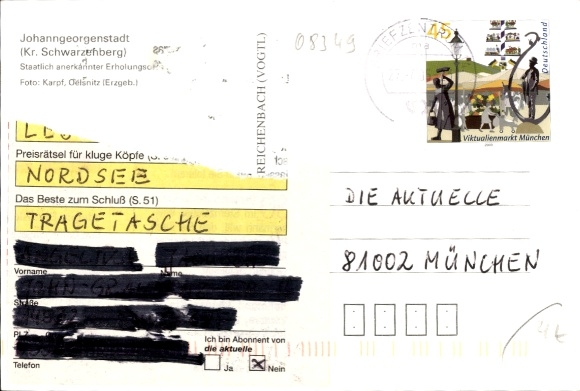 Johanngeorgenstadt
(Kr. Schwarzenberg)
Staatlich anerkannter
Foto: Karpf, Oelsnitz (Erzgeb.)
REICHENBACH (VOGTL)
08349
45
Deutschland
Viktualienmarkt München
Preisrätsel für kluge Köpfe
NORDSEE
Das Beste zum Schluß (S. 51)
TRAGETASCHE
Vorname
Name
Straße
Telefon
Ich bin Abonnent von
die aktuelle
Ja
Nein
DIE AKTUELLE
81002 MÜNCHEN